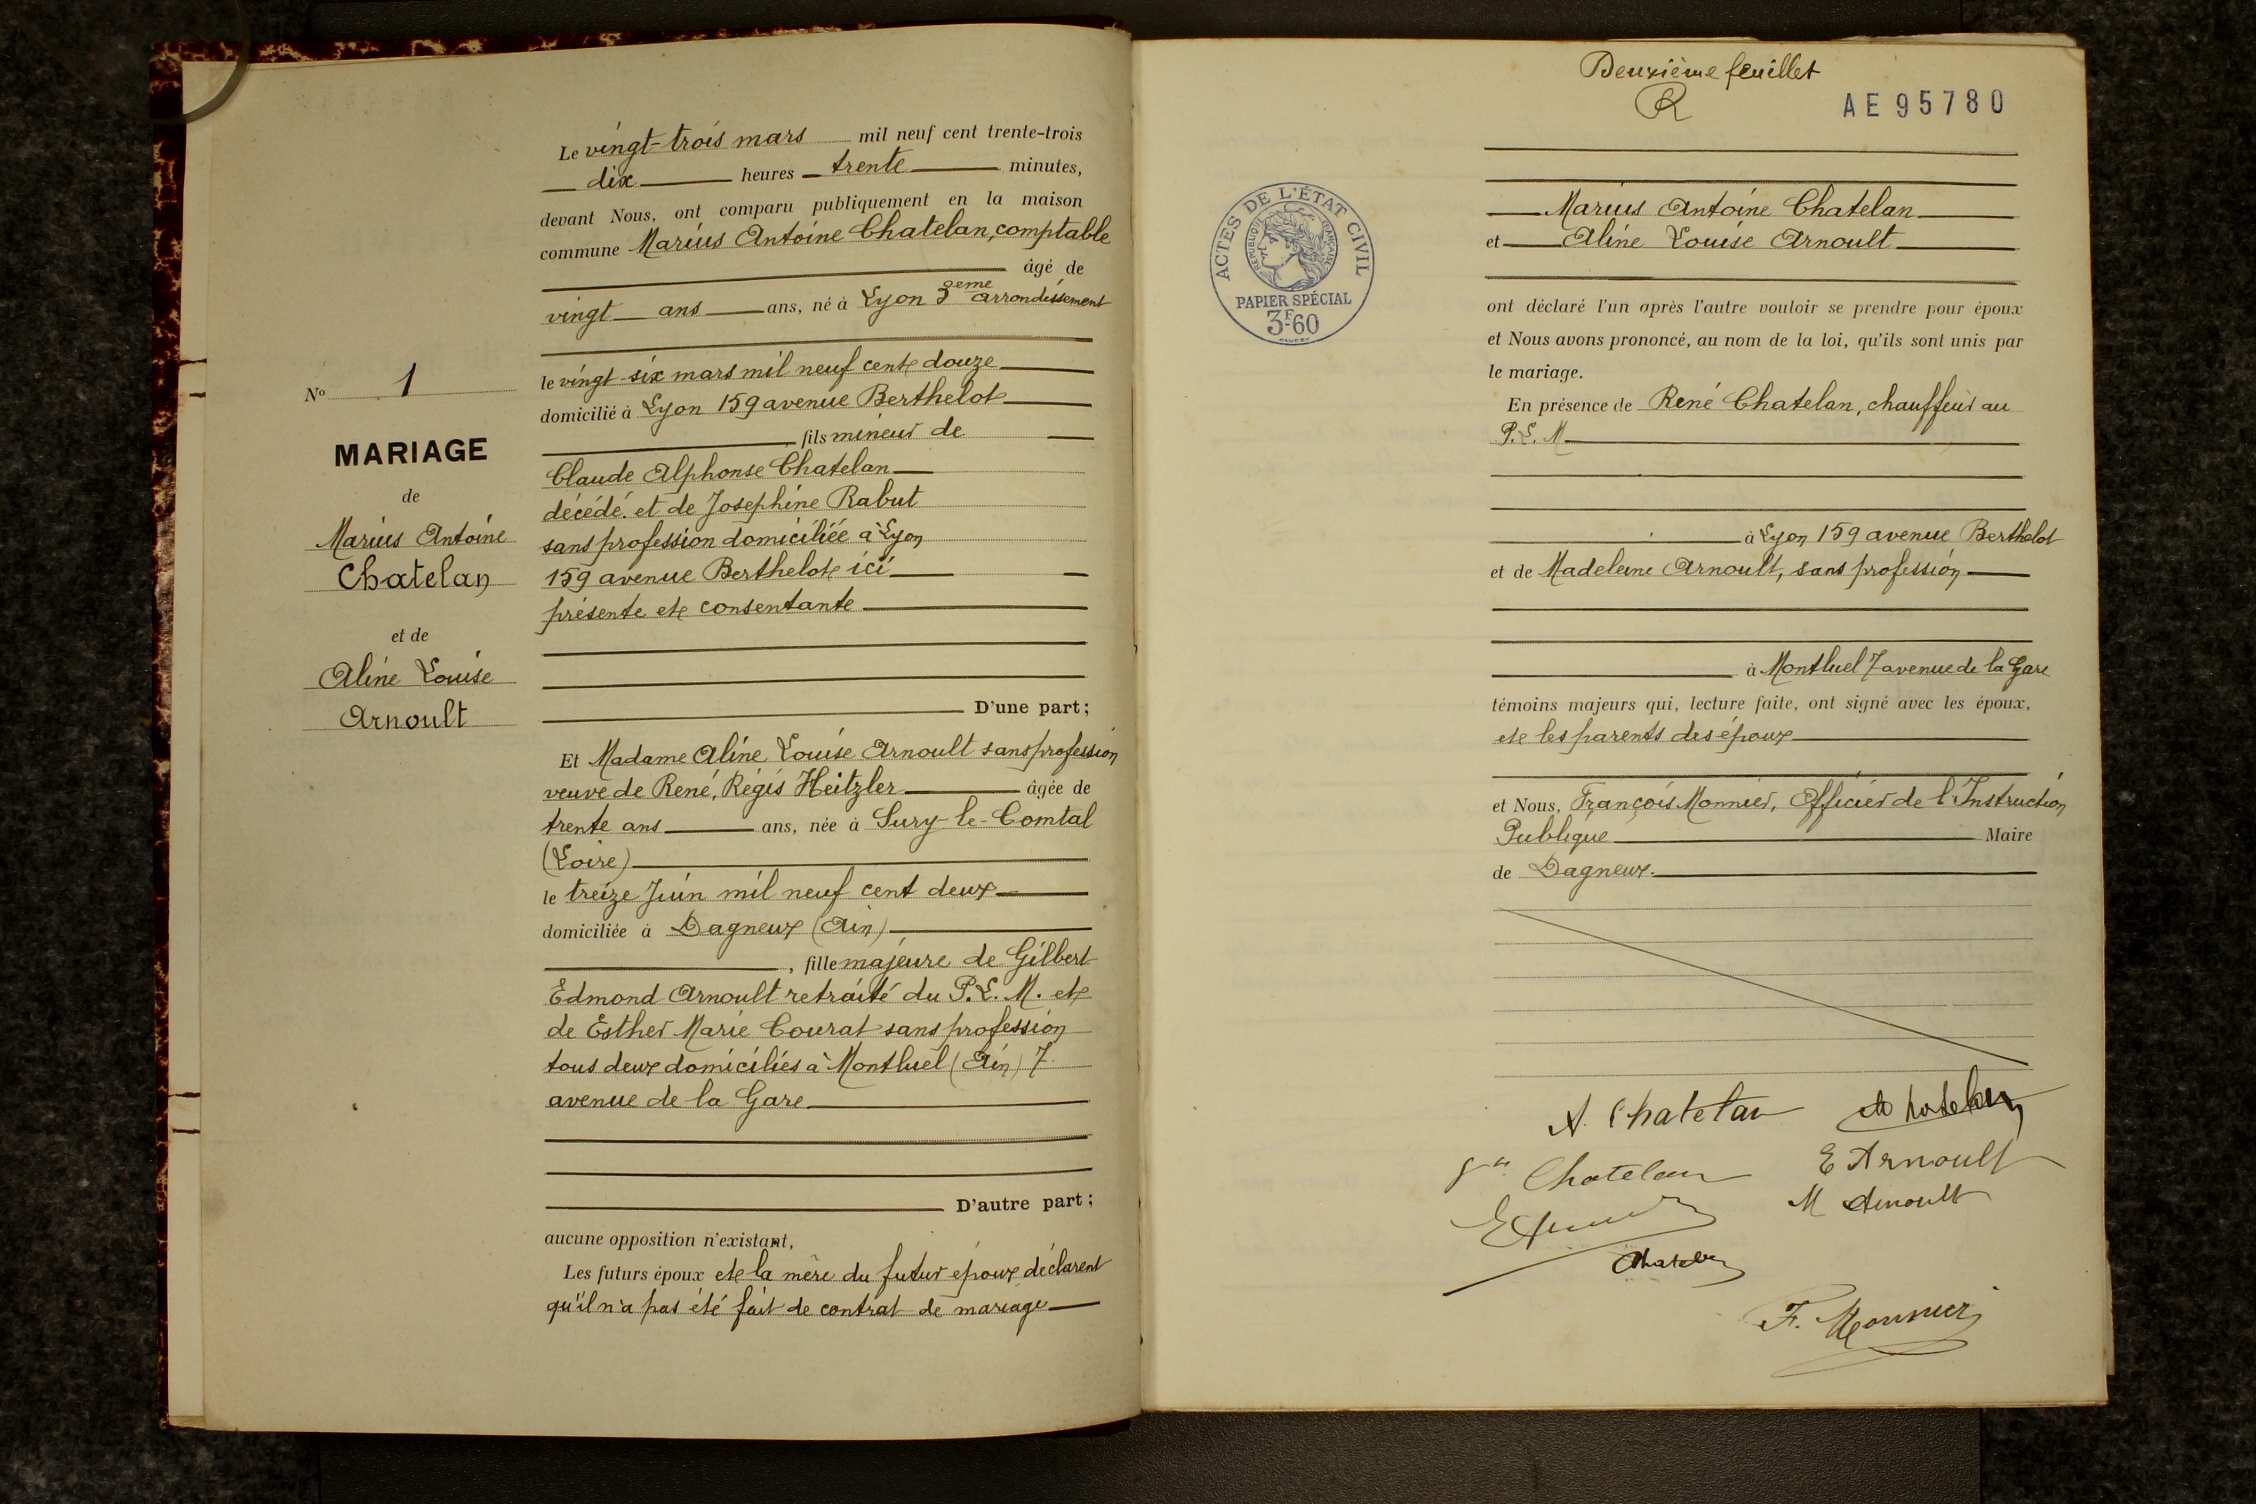 Le vingt-trois mars mil neuf cent trente-trois
dix heures trente minutes,
devant Nous, ont comparu publiquement en la maison
commune Marius Antoine Chatelan, comptable
âgé de
vingt ans ans, né à Lyon 3eme arrondissement
le vingt-six mars mil neuf cent douze
domicilié à Lyon 159 avenue Berthelot
fils mineur de
Claude Alphonse Chatelan
décédé. et de Josephine Rabut
sans profession domiciliée à Lyon
159 avenue Berthelot ici
présente et consentante
D'une part;
Nº 1
MARIAGE
de
Marius Antoine
Chatelan
et de
Aline Louise
Arnoult
Et Madame Aline Louise Arnoult sans profession
veuve de René, Régis Heitzler âgée de
trente ans ans, née à Sury-le-Comtal
(Loire)
le treize Juin mil neuf cent deux
domiciliée à Dagneux (Ain)
, fille majeure de Gilbert
Edmond Arnoult retraité du P.L.M. et
de Esther Marie Courat sans profession
tous deux domiciliés à Montluel (Ain) 7
avenue de la Gare
D'autre part;
aucune opposition n'existant,
Les futurs époux et la mère du futur époux déclarent
qu'il n'a pas été fait de contrat de mariage
Deuxième feuillet
AE 95780
ACTES DE L'ÉTAT CIVIL
RÉPUBLIQUE FRANÇAISE
PAPIER SPÉCIAL
3F60
Marius Antoine Chatelan
et Aline Louise Arnoult
ont déclaré l'un après l'autre vouloir se prendre pour époux
et Nous avons prononcé, au nom de la loi, qu'ils sont unis par
le mariage.
En présence de René Chatelan, chauffeur au
P.L.M
à Lyon 159 avenue Berthelot
et de Madeleine Arnoult, sans profession
à Montluel 7 avenue de la Gare
témoins majeurs qui, lecture faite, ont signé avec les époux,
et les parents des époux
et Nous, François Monnier, Officier de l'Instruction
Publique Maire
de Dagneux.
A. Chatelan
Chatelan
Chatelan
E Arnoult
M Arnoult
Chatelan
F. Monnier